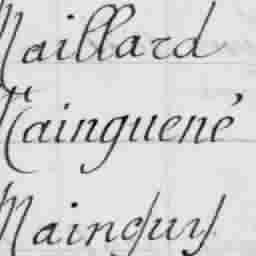 Maillard
Mainguené
Mainguy